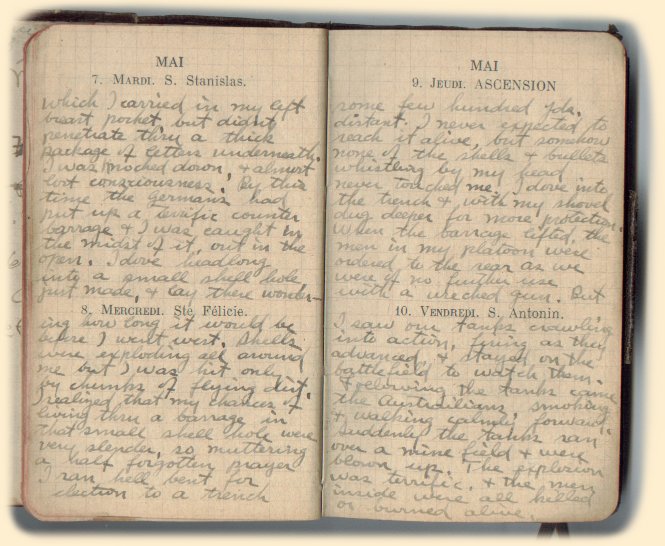 MAI
7. MARDI. S. Stanislas.
which I carried in my left
beast pocket but didn't
penetrate thru a thick
package of letters underneath.
I was knocked down, & almost
lost consciousness. By this
time the germans had
put up a terrific counter
barrage & I was caught in
the midst of it, out in the
open. I dove headlong
into a small shell hole
just made, & lay there wonder-
8. MERCREDI. Ste Félicie.
ing how long it would be
before I went west. Shells
were exploding all around
me but I was hit only
by chunks of flying dirt.
I realized that my chances of
living thru a barrage in
that small shell hole were
very slender, so muttering
a half forgotten prayer
I ran hell bent for
election to a trench
MAI
9. JEUDI. ASCENSION
some few hundred yds.
distant. I never expected to
reach it alive, but somehow
none of the shells & bullets
whistling by my head
never touched me. I dove into
the trench & with my shovel
dug deeper for more protection.
When the barrage lifted, the
men in my platoon were
ordered to the rear as we
were of no further use
with a wrecked gun. But
10. VENDREDI. S. Antonin.
I saw our tanks crawling
into action, firing as they
advanced & stayed on the
battlefield to watch them.
& following the tanks came
the Australians, smoking
& walking calmly forward.
Suddenly the tanks ran
over a mine field & were
blown up. The explosion
was terrific, & the men
inside were all killed
or burned alive.